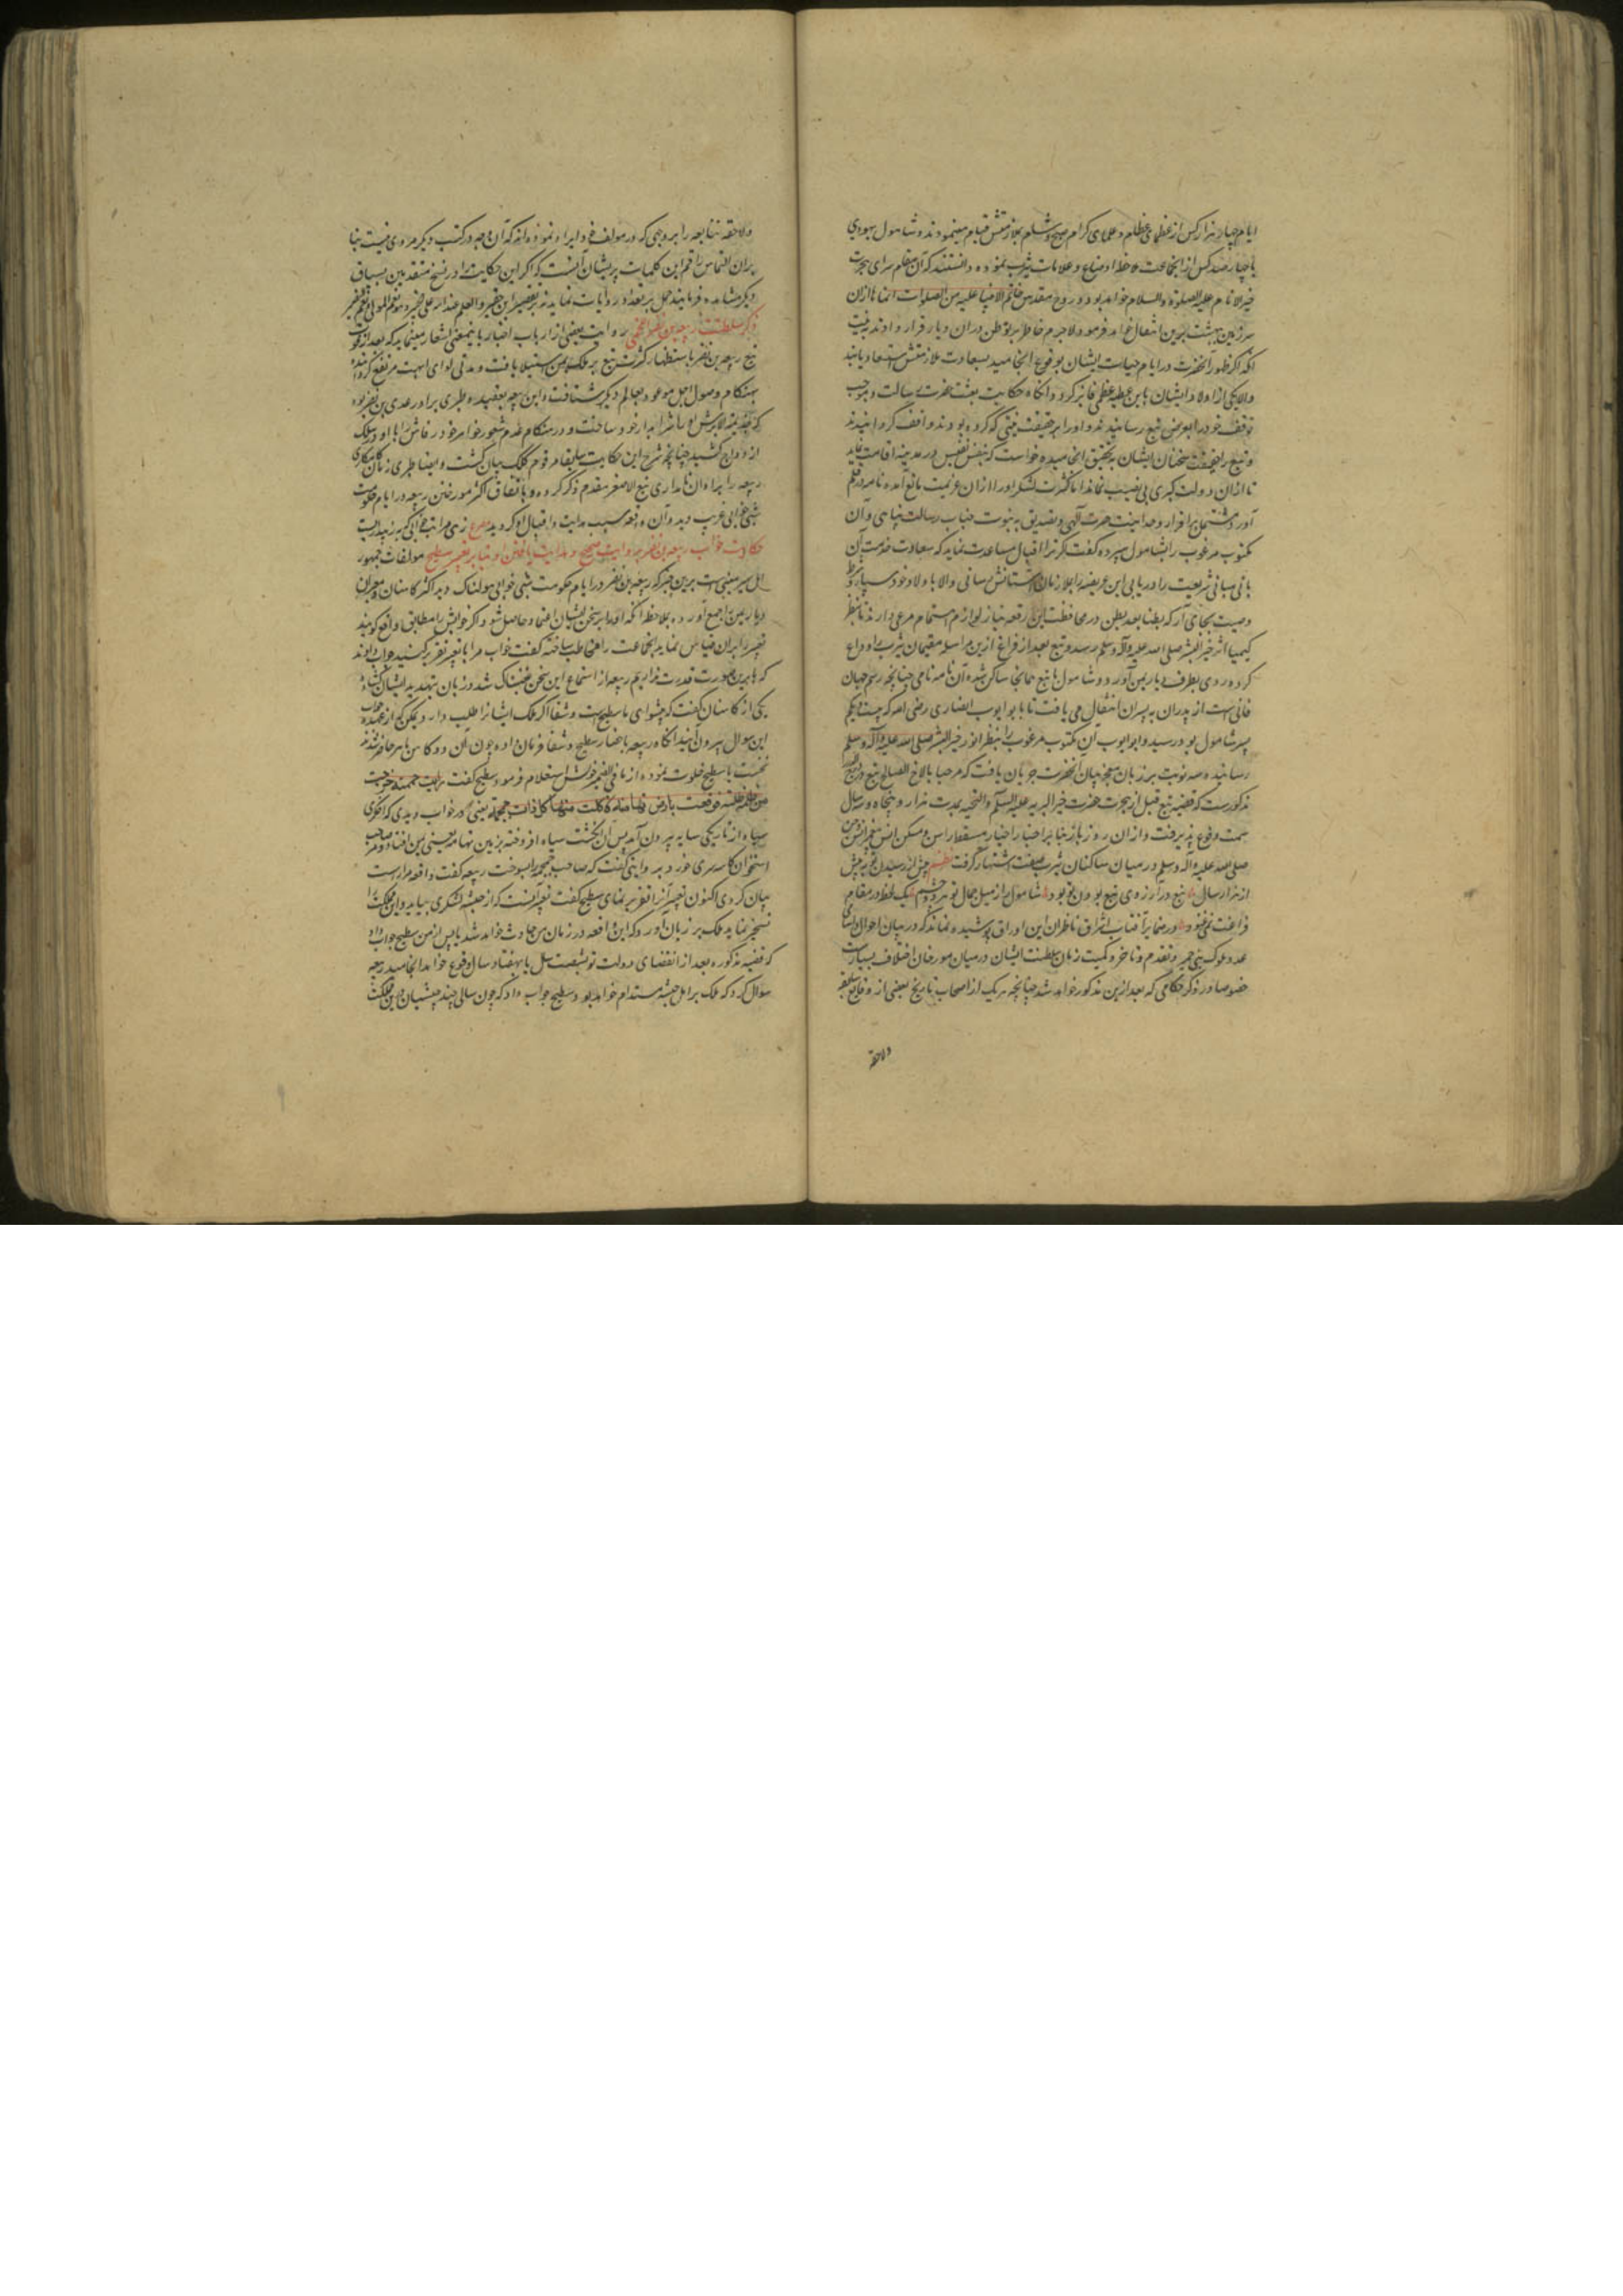 ایام چهار هزار کس از عظمای عظام و علمای کرام صبح و شام بملازمتش قیام مینمودند و شامول یهودی
با چهار صد کس از انجماعت ملاحظه اوضاع و علامات یثرب نموده دانستند که آن مقام سرای هجرت
خیر الانام علیه الصلوة والسلام خواهد بود و روح مقدس خاتم الانبیا علیه من الصلوات انماها ازان
سرزمین بهشت برین انتقال خواهد فرمود لاجرم خاطر بر توطن دران دیار قرار دادند به نیت
آنکه اگر ظهور آنحضرت در ایام حیات ایشان بوقوع انجامید بسعادت ملازمتش استسعاد یابند
والا یکی از اولاد ایشان باین عطیه عظمی فایز گردد و آنگاه حکایت بعثت حضرت رسالت و موجب
توقف خود را بعرض تبع رسانیدند و او را بر حقیقت نیتی که کرده بودند واقف گردانیدند
و تبع را حقیقت سخنان ایشان به تحقیق انجامیده خواست که بنفس نفیس در مدینه اقامت نماید
تا ازان دولت کبری بی نصیب نماند اما کثرت لشکر او را ازان عزیمت مانع آمده نامه در قلم
آورد مشتمل بر اقرار وحدانیت حضرت آلهی و تصدیق به نبوت جناب رسالت پناهی و آن
مکتوب مرغوب را بشامول سپرده گفت اگر ترا اقبال مساعدت نماید که سعادت خدمت آن
بانی مبانی شریعت را دریابی این عریضه را بملازمان آستانش رسانی والا باولاد خود سپار و شرط
وصیت بجای آر که بطنا بعد بطن در محافظت این رقعه نیاز لوازم اهتمام مرعی دارند تا بنظر
کیمیا اثر خیر البشر صلی الله علیه وآله وسلم رسد و تبع بعد از فراغ ازین مراسله مقیمان یثرب را وداع
کرده روی بطرف دیار یمن آورد و شامول با تبع همانجا ساکن شده آن نامه نامی چنانچه رسم جهان
فانی است از پدران به پسران انتقال می یافت تا بابو ایوب انصاری رضی الله که بیست و یکم
پسر شامول بود رسید و ابو ایوب آن مکتوب مرغوب را بنظر انور خیر البشر صلی الله علیه وآله وسلم
رسانیده سه نوبت بر زبان معجز بیان آنحضرت جریان یافت که مرحبا بالاخ الصالح تبع
مذکورست که قضیه تبع قبل از هجرت حضرت خیر البریه علیه السلام والتحیه بمدت هزار و پنجاه و سال
سمت وقوع پذیرفت و ازان روز باز بنابر اخبار احبار مسقط راس و مسکن انس
صلی الله علیه وآله وسلم در میان ساکنان یثرب صفت اشتهار گرفت نظم پیش از رسیدن تو به پیش
از هزار سال تبع در آرزوی تبع بودن تو بود شامول را ز میل جمال تو هر دو چشم یک لحظه در مقام
فراغت نمی غنود و بر ضمایر آفتاب اشراق ناظران این اوراق پوشیده نماند که در بیان احوال و اسامی
عدد ملوک بنی حمیر و تقدم و تاخر و کمیت زمان سلطنت ایشان در میان مورخان اختلاف بسیارست
خصوصا در ذکر حکامی که بعد ازین مذکور خواهد شد چنانچه هر یک از اصحاب تاریخ بعضی از وقایع سابقه
ولاحقه
ولاحقه تبابعه را بر وجهی که در مولف خود ایراد نموده اند که آن وجه در کتب دیگر مروی نیست بنا
بران التماس راقم این کلمات پریشان آنست که اگر این حکایت را در نسخ متقدمین بسیاق
دیگر مشاهده فرمایند حمل بر تعدد روایات نمایند نه بر تقصیر این حقیر والعلم عند الله علی الخبیر و هو نعم المولی و نعم النصیر
ذکر سلطنت ربیعه بن نضر اللخمی روایت بعضی از ارباب اخبار باینمعنی اشعار مینماید که بعد از فوت
تبع ربیعه بن نضر باستظهار کثرت تبع بر ملک یمن استیلا یافت و مدتی لوای ابهت مرتفع گردانیده
بهنگام وصول اجل موعود بعالم دیگر شتافت و این ربیعه بعقیده طبری برادر عدی بن نضر بود
که جذیمة الابرش او را شرابدار خود ساخت و در هنگام عدم شعور خواهر خود رقاش را با او در سلک
ازدواج کشید چنانچه شرح این حکایت سابقا مرقوم کلک بیان گشت و ایضا طبری زمان کامکاری
ربیعه را بر اوان نامداری تبع الاصغر مقدم ذکر کرده و باتفاق اکثر مورخین ربیعه در ایام حکومت
شبی خوابی غریب دید و آن واقعه سبب هدایت و اقبال او گردید مصرع زهی مراتب خوابی که به ز بیداریست
حکایت خواب ربیعه بن نضر بروایت صحیح و هدایت یافتن او بنابر تعبیر سطیح مولفات جمهور
اهل سیر مبنی است برین خبر که ربیعه بن نضر در ایام حکومت شبی خوابی هولناک دید اکثر کاهنان و معبران
دیار یمن را جمع آورده بملاحظه آنکه او را بر سخن ایشان اعتماد حاصل شود و اگر خوابش را مطابق واقع گویند
تعبیر را بران قیاس نماید انجماعت را مخاطب ساخته گفت خواب مرا با تعبیر تقریر کنید جواب دادند
که ما برین صورت قدرت نداریم ربیعه از استماع این سخن غضبناک شد و زبان بتهدید ایشان گشاد
یکی از کاهنان گفت که پیشوای ما سطیح است و شق اگر ملک ایشانرا طلب دارد ممکن که از عهده جواب
این سوال بیرون آیند آنگاه ربیعه باحضار سطیح و شق فرمان داده چون آن دو کاهن ماهر حاضر شدند
نخست با سطیح خلوت نموده از ما فی الضمیر خویش استعلام فرمود سطیح گفت رایت حممة خرجت
من ظلمة فوقعت بارض تهامة فاکلت منها کل ذات جمجمة یعنی در خواب دیدی که اخگری
سیاه از تاریکی سایه بیرون آمد پس آن انگشت سیاه افروخته بزمین تهامه یعنی یمن افتاد و هر صاحب
استخوان کاسه سری خورد بروایتی گفت که صاحب جمجمه را بسوخت ربیعه گفت واقعه مرا راست
بیان کردی اکنون تعبیر آنرا تقریر نمای سطیح گفت تعبیر آنست که از حبشه لشکری بیاید و این مملکت را
تسخیر نماید ملک بر زبان آورد که این واقعه در زمان من حادث خواهد شد یا پس از من سطیح جواب داد
که قضیه مذکوره بعد از انقضای دولت تو بشصت سال یا بهفتاد سال بوقوع خواهد انجامید ربیعه
سؤال کرد که ملک بر اهل حبشه مستدام خواهد بود سطیح جواب داد که چون سالی چند حبشیان درین مملکت